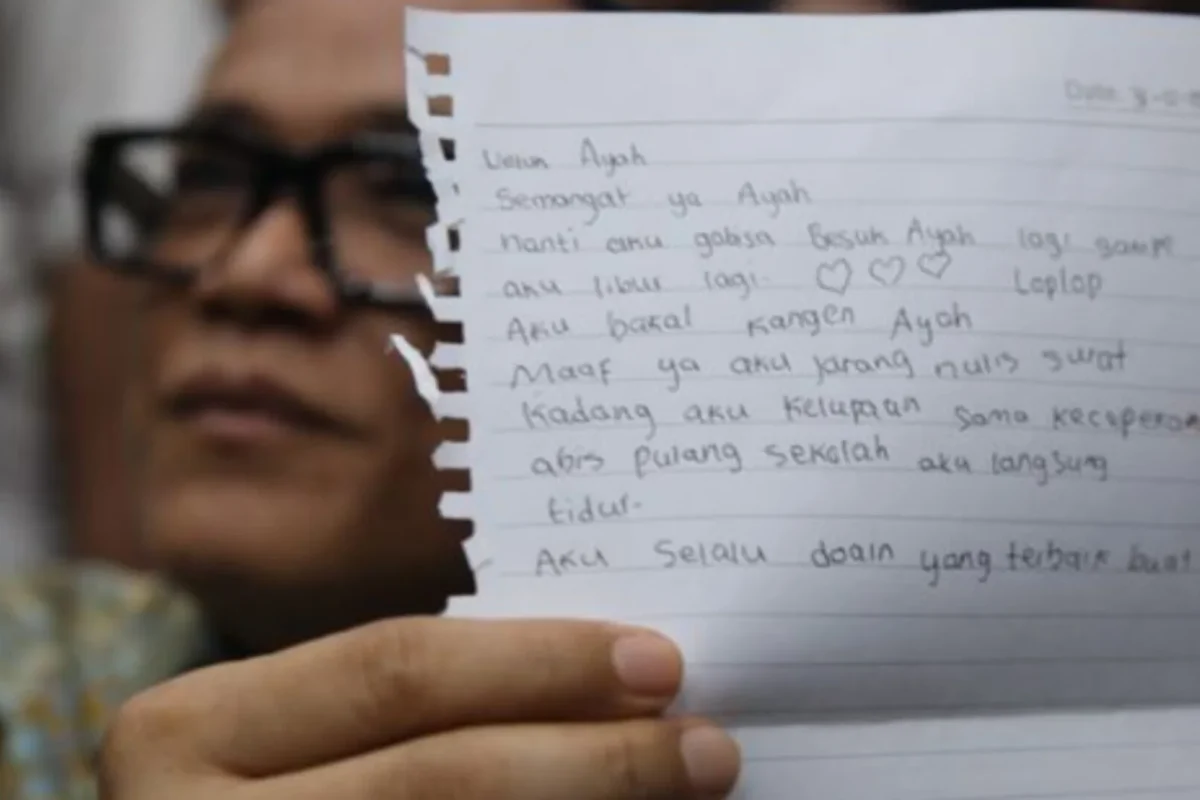 Date
Untuk Ayah
Semangat ya Ayah
nanti aku gabisa Besuk Ayah lagi sampe
aku libur lagi. Loplop
Aku bakal kangen Ayah
Maaf ya aku jarang nulis surat
Kadang aku kelupaan sama kecapean
abis pulang sekolah aku langsung
tidur.
Aku Selalu doain yang terbaik buat